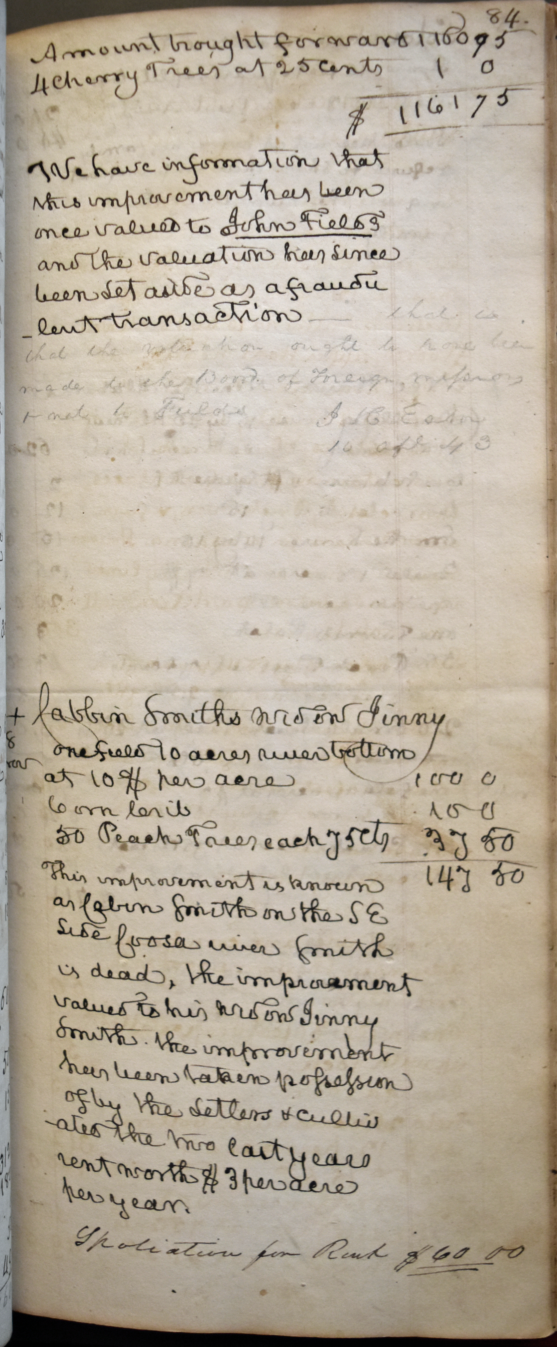 84.
Amount brought forward 1160 95
4 Cherry Trees at 25 cents 1 0
$ 1161 75
We have information that
this improvement has been
once valued to John Fields
and the valuation has since
been Set aside as a fraudu
-lent transaction that is
that the valuation ought to have been
made to the Board of Foreign missions
+ not to Fields
+ Cabbin Smiths widow Jinny
one field 10 acres river bottom
at 10 $ per acre 100 0
Corn Crib 10 0
50 Peach Trees each 75 cts 37 50
147 50
This improvement is known
as Cabin Smith on the SE
Side Coosa river Smith
is dead, the improvement
valued to his widow Jinny
Smith. the improvement
has been taken possession
of by the Settlers & cultiv
-ated the two last years
rent worth $ 3 per acre
per year.
Spoliation for Rent $60 00